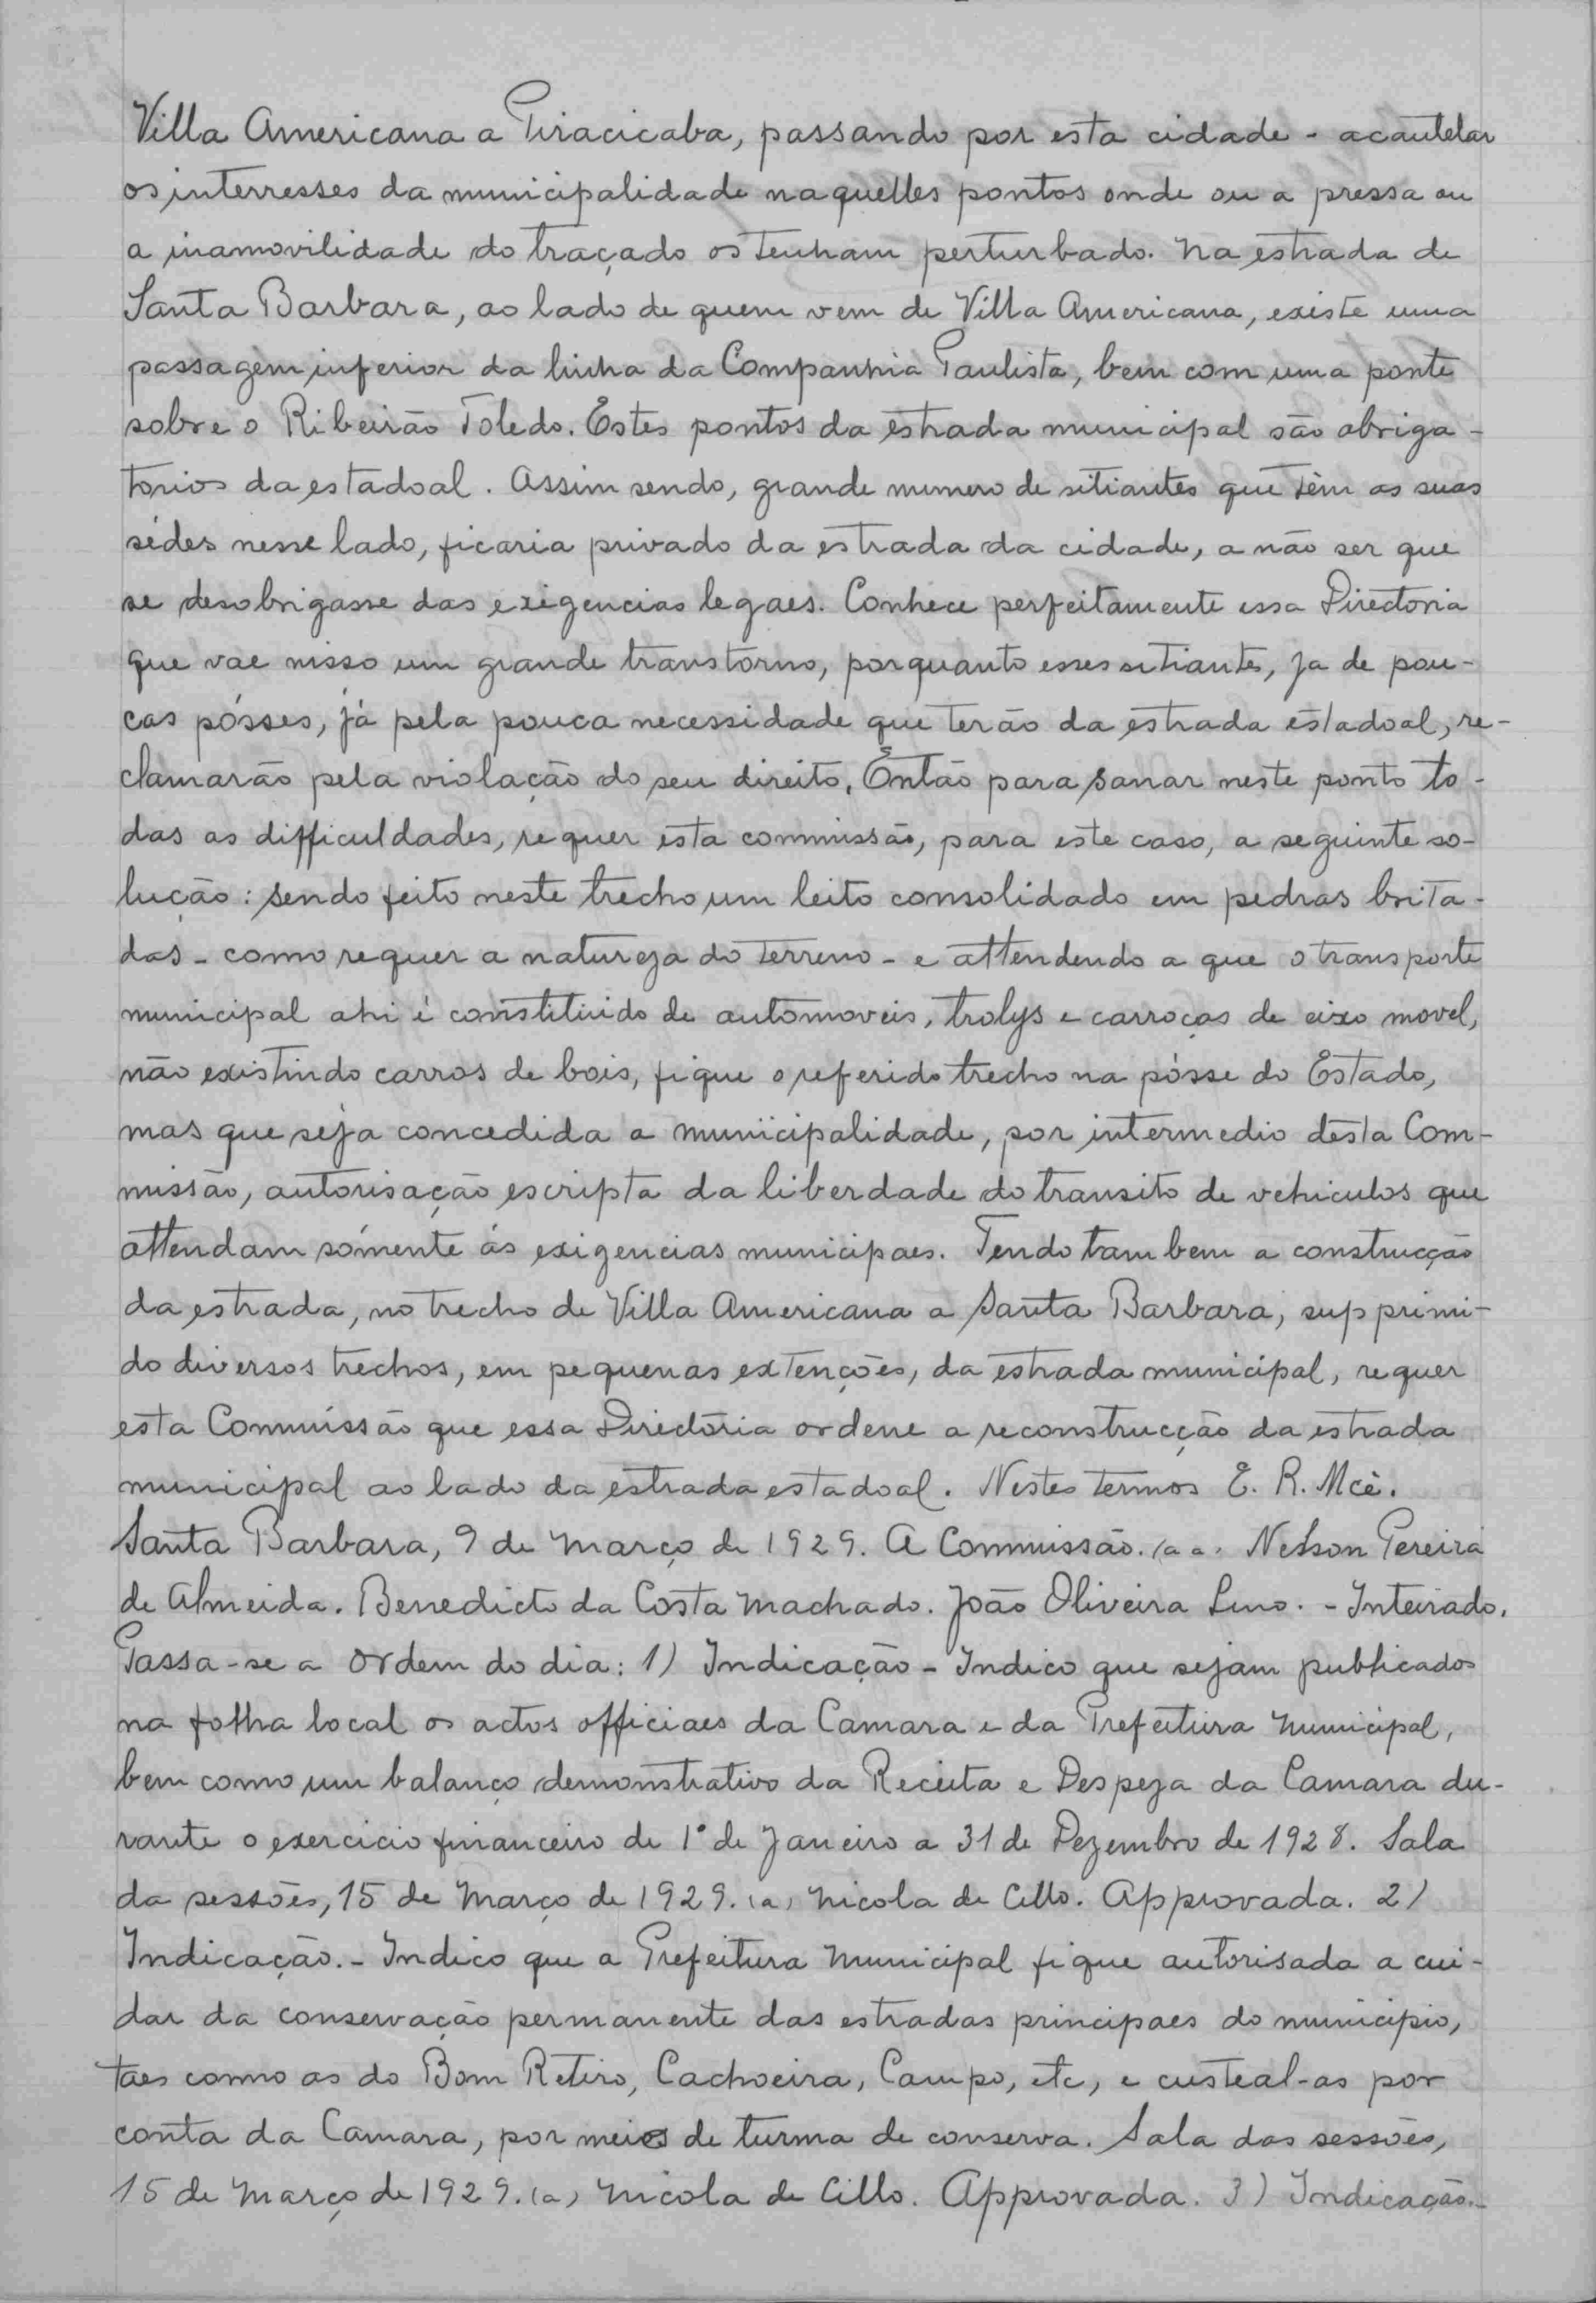 Villa Americana a Piracicaba, passando por esta cidade - acautelar
os interresses da municipalidade naquelles pontos onde ou a pressa ou
a inamovilidade do traçado os tenham perturbado. Na estrada de
Santa Barbara, ao lado de quem vem de Villa Americana, existe uma
passagem inferior da linha da Companhia Paulista, bem com uma ponte
sobre o Ribeirão Toledo. Estes pontos da estrada municipal são obriga-
torios da estadoal. Assim sendo, grande numero de sitiantes que têm as suas
sédes nesse lado, ficaria privado da estrada da cidade, a não ser que
se desobrigasse das exigencias legaes. Conhece perfeitamente essa Directoria
que vae nisso um grande transtorno, porquanto esses sitiantes, ja de pou-
cas pósses, já pela pouca necessidade que terão da estrada estadoal, re-
clamarão pela violação do seu direito. Então para sanar neste ponto to-
das as difficuldades, requer esta commissão, para este caso, a seguinte so-
lução: sendo feito neste trecho um leito consolidado em pedras brita-
das - como requer a natureza do terreno - e attendendo a que o transporte
municipal ahi é constituido de automoveis, trolys e carroças de eixo movel,
não existindo carros de bois, fique o referido trecho na pósse do Estado,
mas que seja concedida a municipalidade, por intermedio desta Com-
missão, autorisação escripta da liberdade do transito de vehiculos que
attendam sómente ás exigencias municipaes. Tendo tambem a construcção
da estrada, no trecho de Villa Americana a Santa Barbara, supprimi-
do diversos trechos, em pequenas extenções, da estrada municipal, requer
esta Commissão que essa Directoria ordene a reconstrucção da estrada
municipal ao lado da estrada estadoal. Nestes termos E. R. Mcê.
Santa Barbara, 9 de Março de 1929. A Commissão. (a a. Nelson Pereira
de Almeida. Benedicto da Costa Machado. João Oliveira Lino. - Inteirado.
Passa-se a Ordem do dia: 1) Indicação - Indico que sejam publicados
na folha local os actos officiaes da Camara e da Prefeitura Municipal,
bem como um balanço demonstrativo da Receita e Despeza da Camara du-
rante o exercicio financeiro de 1º de Janeiro a 31 de Dezembro de 1928. Sala
da sessões, 15 de Março de 1929. (a) Nicola de Cillo. Approvada. 2)
Indicação. - Indico que a Prefeitura Municipal fique autorisada a cui-
dar da conservação permanente das estradas principaes do municipio,
taes como as do Bom Retiro, Cachoeira, Campo, etc, e custeal-as por
conta da Camara, por meios de turma de conserva. Sala das sessões,
15 de Março de 1929. (a) Nicola de Cillo. Approvada. 3) Indicação.-